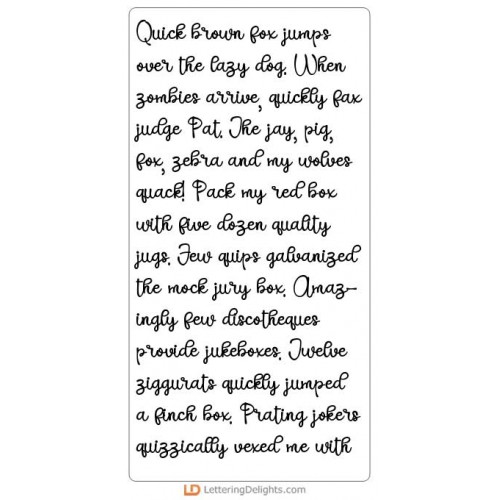 Quick brown fox jumps
over the lazy dog. When
zombies arrive, quickly fax
judge Pat. The jay, pig,
fox, zebra and my wolves
quack! Pack my red box
with five dozen quality
jugs. Few quips galvanized
the mock jury box. Amaz-
ingly few discotheques
provide jukeboxes. Twelve
ziggurats quickly jumped
a finch box. Prating jokers
quizzically vexed me with
LD LetteringDelights.com